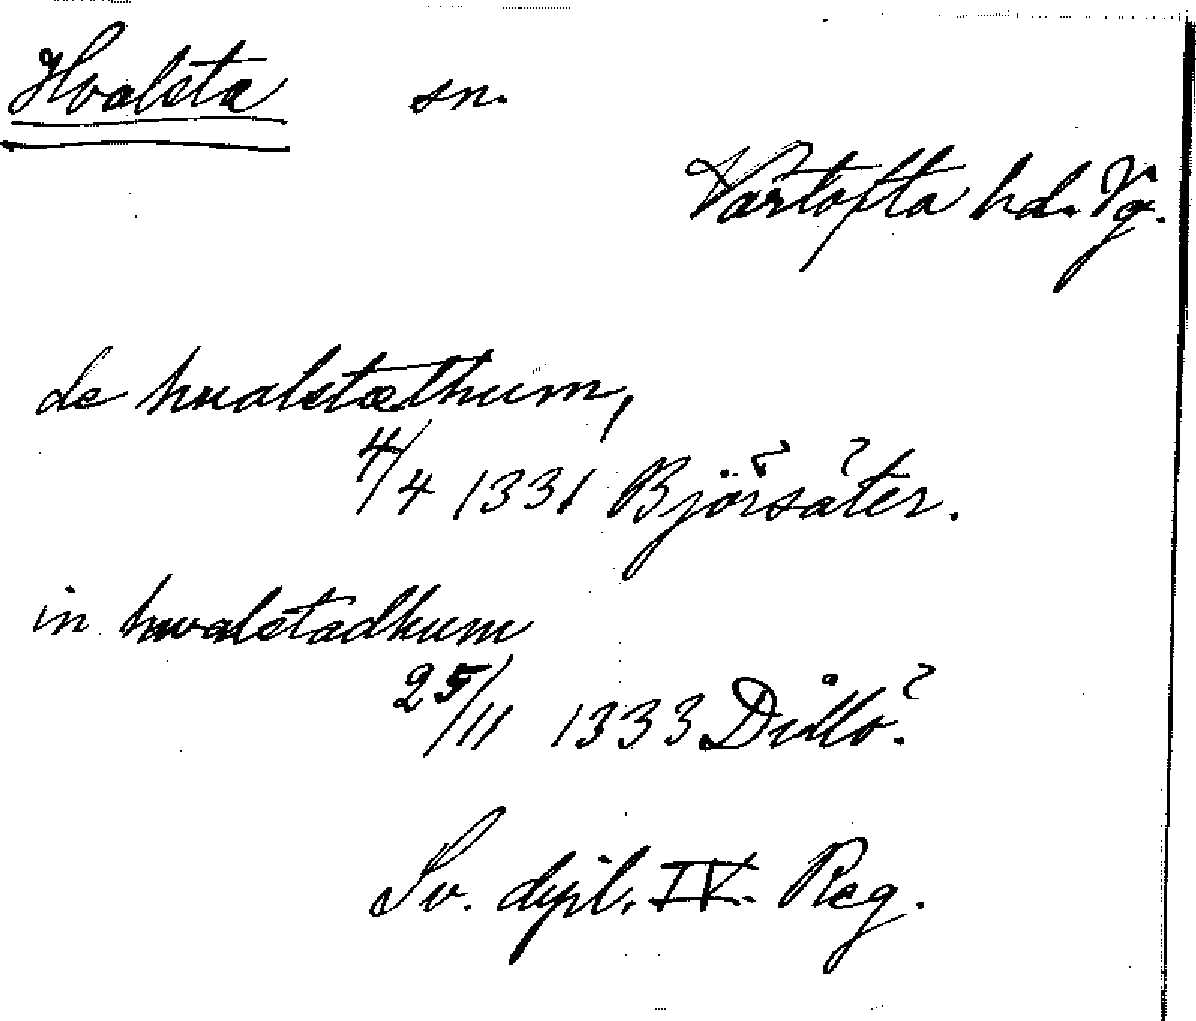 Hvalsta sn.
Vartofta hd. Vg.
de hualstæthum,
4/4 1331 Björsäter.
in hwalstadhum
25/11 1333 Ditto.
Sv. dipl. IV. Reg.